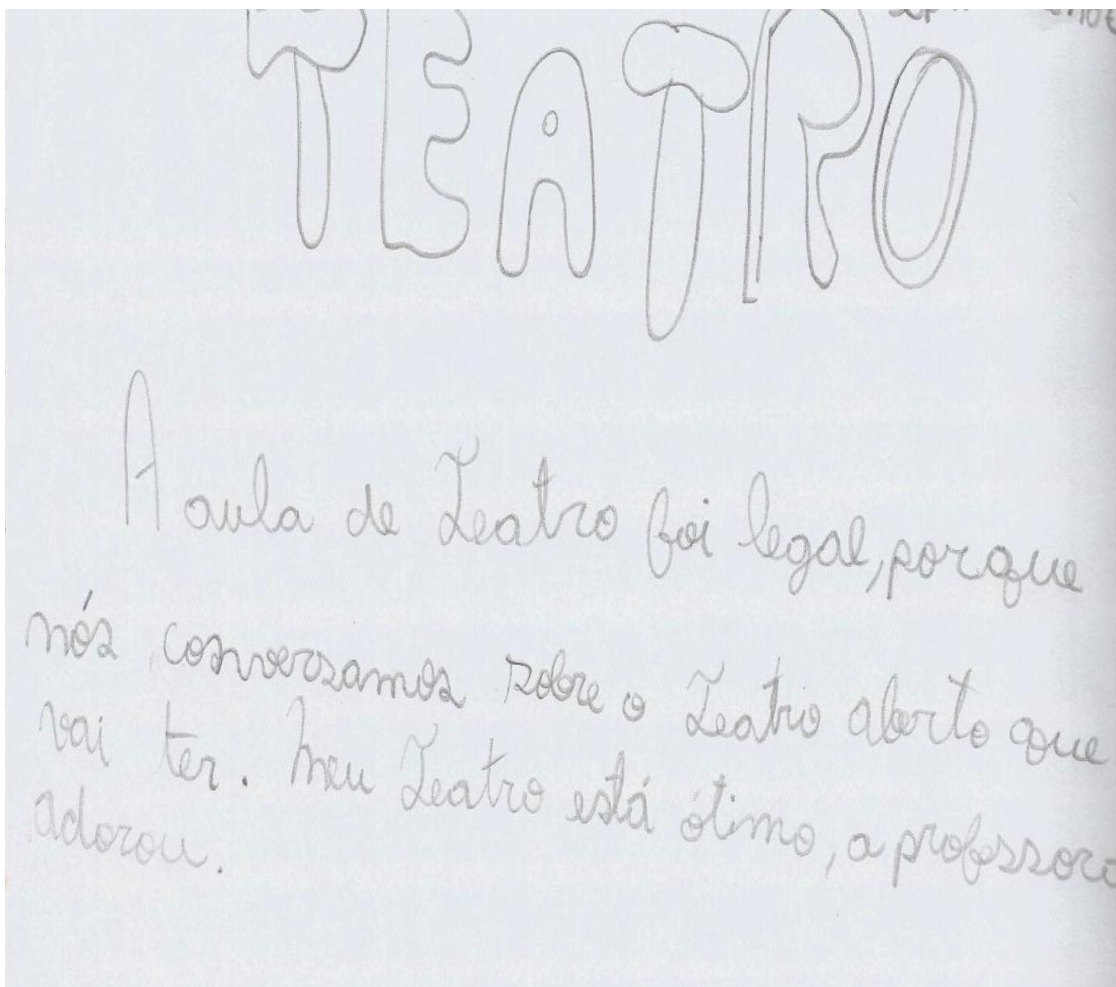 TEATRO
A aula de Teatro foi legal, porque
nós conversamos sobre o Teatro aberto que
vai ter. Meu Teatro está ótimo, a professora
adorou.